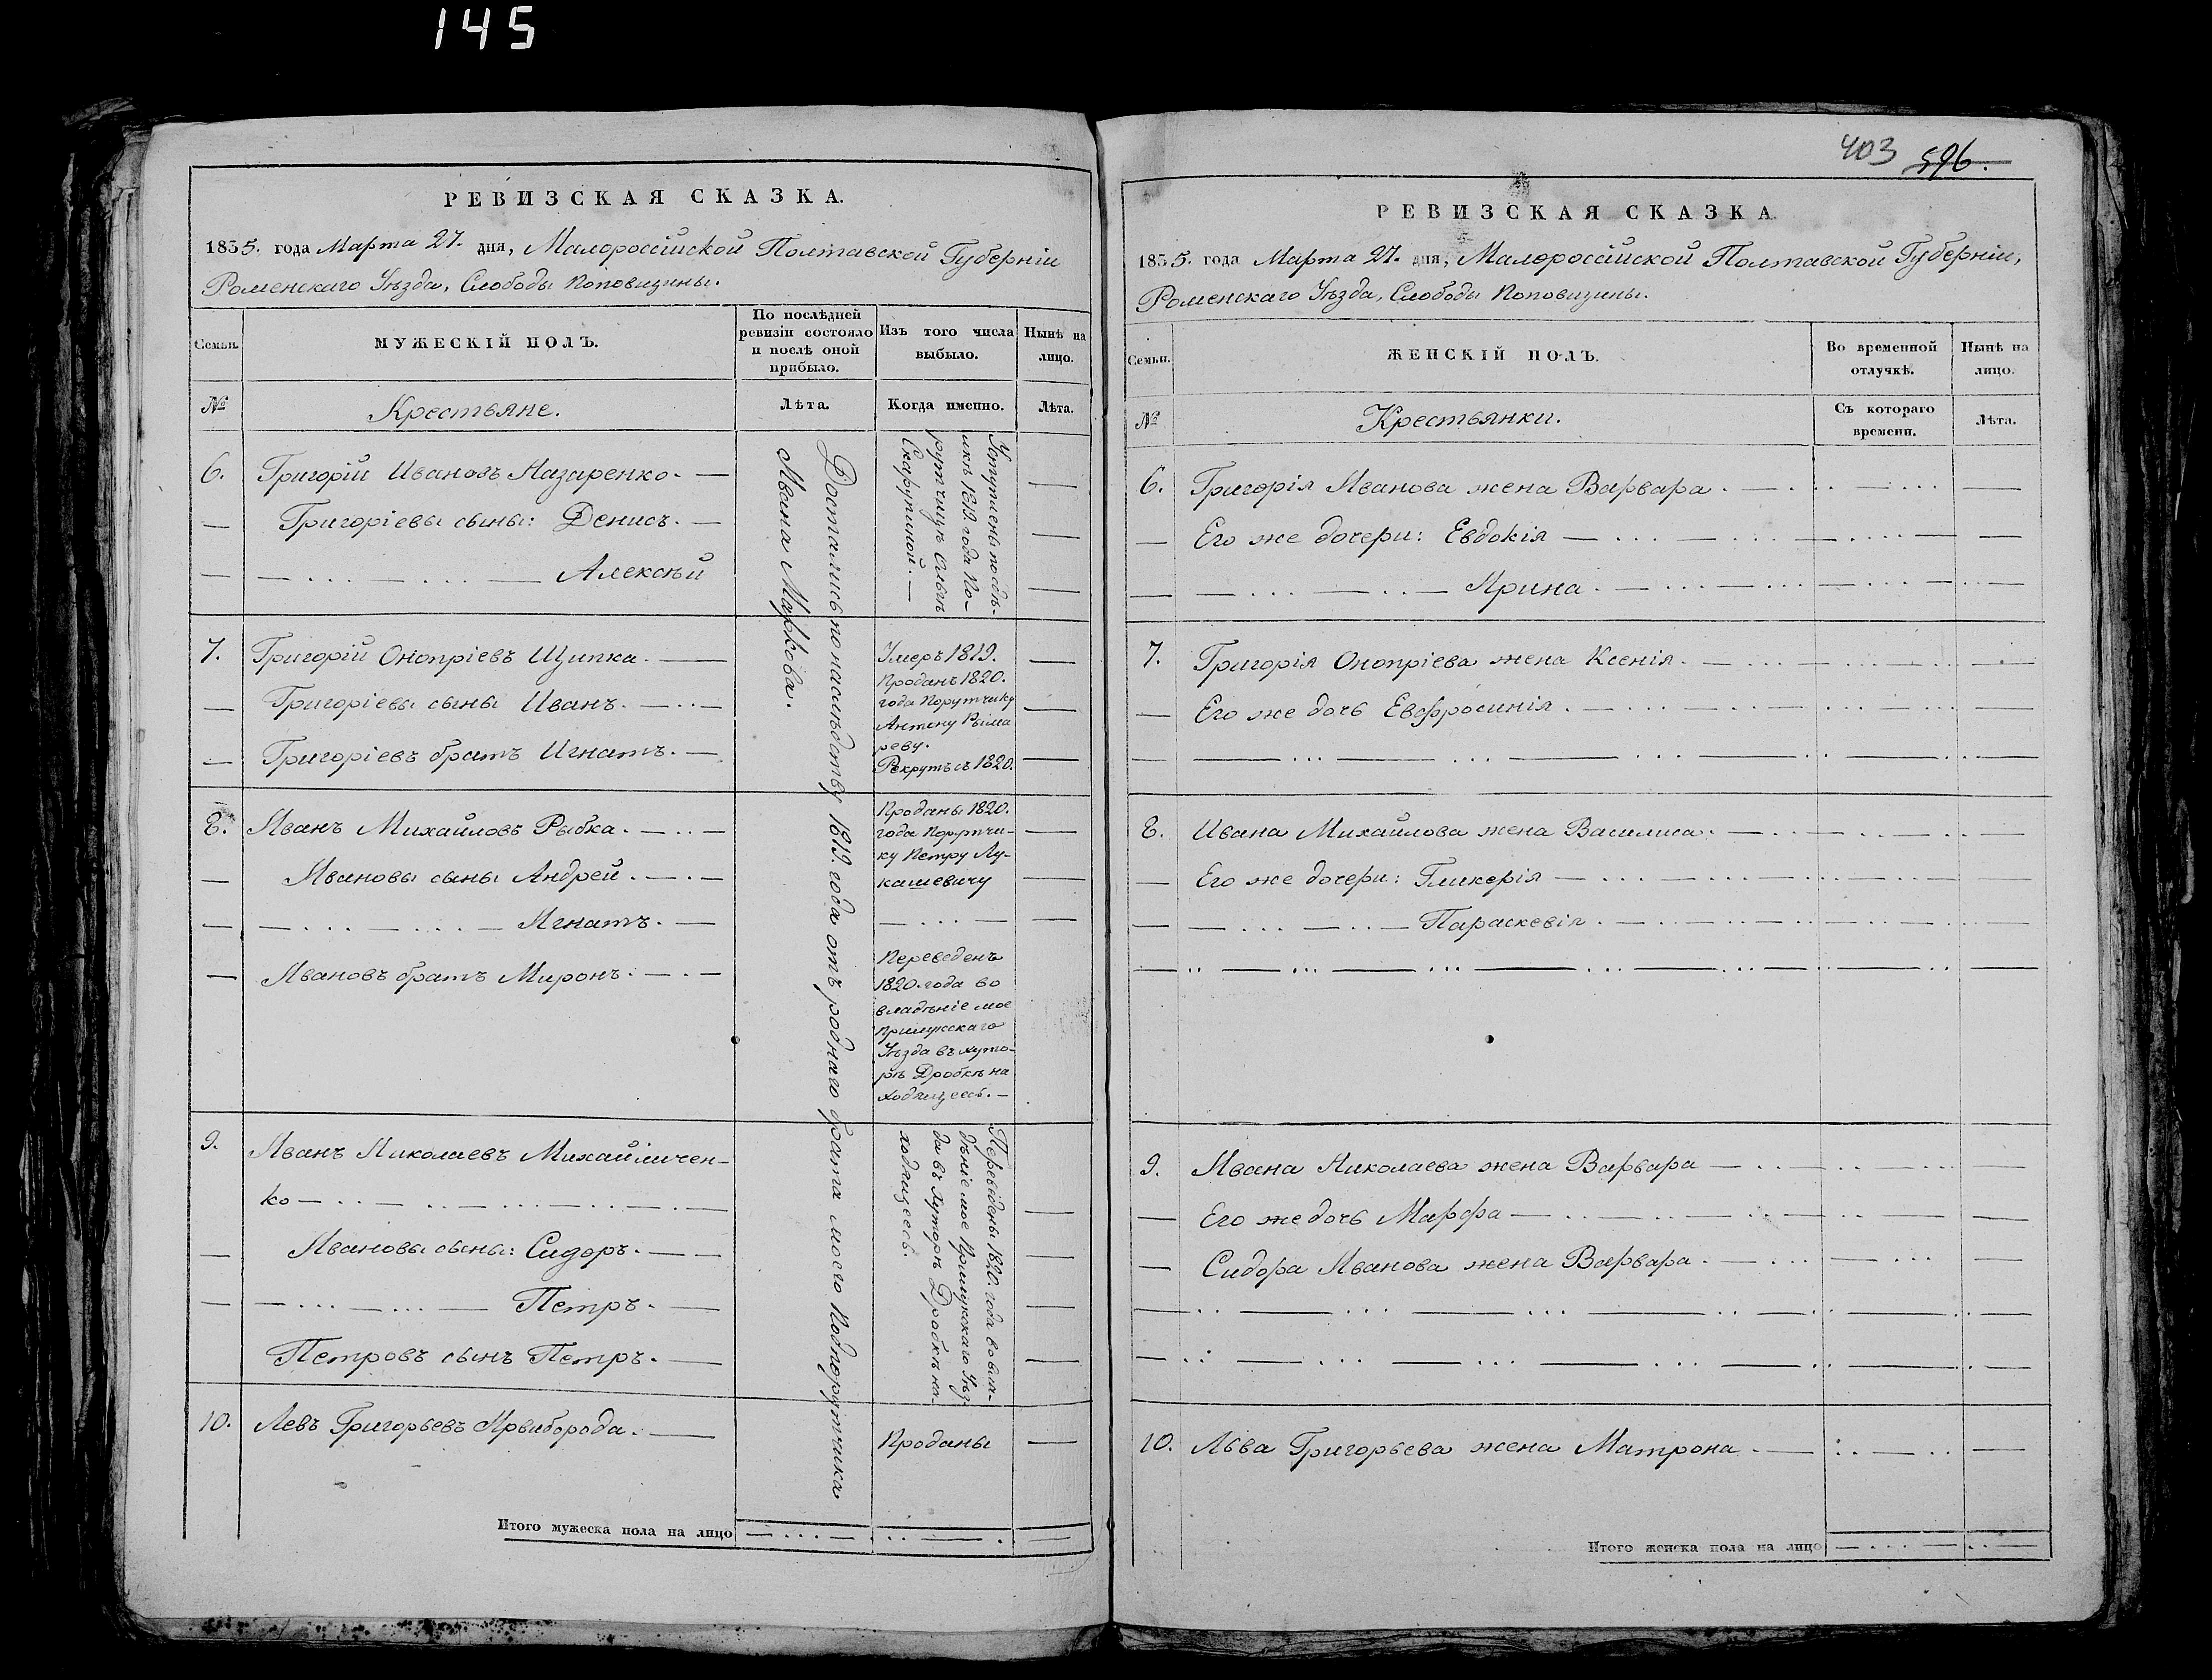 145
РЕВИЗСКАЯ СКАЗКА.
1835. года Марта 27. дня, Малороссійской Полтавской Губерніи
Роменскаго Уѣзда, Слободы Поповщины.
Семьи.
МУЖЕСКІЙ ПОЛЪ.
По послѣдней
ревизіи состояло
и послѣ оной
прибыло.
Изъ того числа
выбыло.
Нынѣ на
лицо.
№
Крестьяне.
Лѣта.
Когда именно.
Лѣта.
Досталисъ по наслѣдству 1819. года отъ роднаго брата моего Подпорутчика
Ивана Маркова.
6. Григорій Ивановъ Назаренко.
Григоріевы сыны: Денисъ.
Алексѣй
1819. года По-
рутчицѣ
Скарупиной.
7. Григорій Оноприевъ Щипка.
Умеръ 1819.
Григоріевы сыны Иванъ.
Проданъ 1820.
года Порутчику
Григоріевъ братъ Игнатъ.
Рекрутъ съ 1820.
8. Иванъ Михайловъ Рыбка.
Ивановы сыны Андрей.
Игнатъ.
Проданы 1820.
года Порутчи-
ку Петру Лу-
кашевичу
Ивановъ братъ Миронъ.
Переведенъ
1820. года во
владѣніе мое
Прилукскаго
Уѣзда въ хуто-
рѣ Дробкѣ на
ходящеесь.
9. Иванъ Николаевъ Михайличен-
ко
Ивановы сыны: Сидоръ.
Петръ.
Петровъ сынъ Петръ.
Переведены 1820. года во вла-
дѣніе мое Прилукскаго Уѣз-
да въ хуторѣ Дробкѣ на-
ходящеесь.
10. Левъ Григорьевъ Кривоборода.
Проданы
Итого мужеска пола на лицо
403 596.
РЕВИЗСКАЯ СКАЗКА
1835. года Марта 27. дня, Малороссійской Полтавской Губерніи,
Роменскаго Уѣзда, Слободы Поповщины.
Семьи.
ЖЕНСКІЙ ПОЛЪ.
Во временной
отлучкѣ.
Нынѣ на
лицо.
№
Крестьянки.
Съ котораго
времени.
Лѣта.
6. Григорія Иванова жена Варвара.
Его же дочери: Евдокія
Ирина.
7. Григорія Оноприева жена Ксенія.
Его же дочь Евфросинія.
8. Ивана Михайлова жена Василиса.
Его же дочери: Гликерія
Параскевія.
9. Ивана Николаева жена Варвара
Его же дочь Марфа
Сидора Иванова жена Варвара.
10. Льва Григорьева жена Матрона.
Итого женска пола на лицо